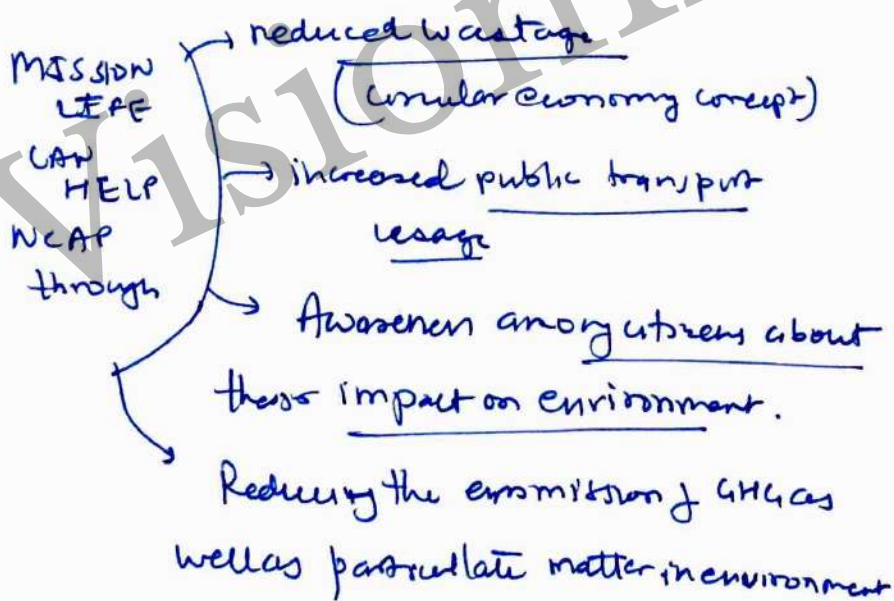 MISSION
LIFE
CAN
HELP
NCAP
through
reduced wastage
(circular economy concept)
increased public transport
usage
Awareness among citizens about
their impact on environment.
Reducing the emission of GHG as
well as particulate matter in environment
Vision